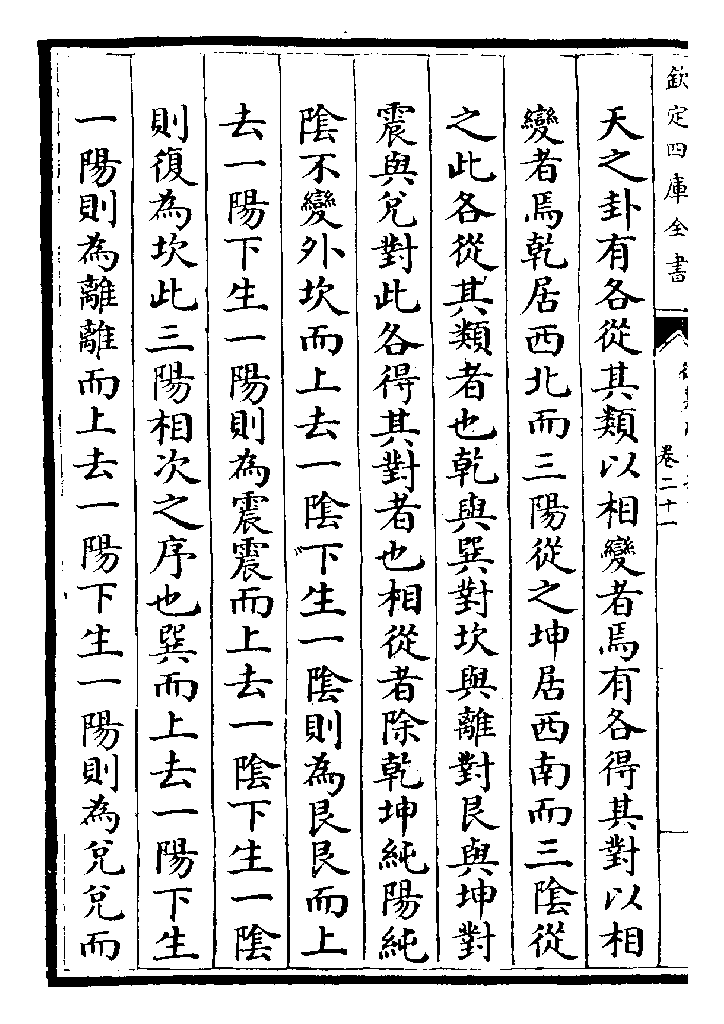 欽定四庫全書
卷二十一
天之卦有各從其類以相變者焉有各得其對以相
變者焉乾居西北而三陽從之坤居西南而三陰從
之此各從其類者也乾與巽對坎與離對艮與坤對
震與兌對此各得其對者也相從者除乾坤純陽純
陰不變外坎而上去一陰下生一陰則為艮艮而上
去一陽下生一陽則為震震而上去一陰下生一陰
則復為坎此三陽相次之序也巽而上去一陽下生
一陽則為離離而上去一陽下生一陽則為兌兌而